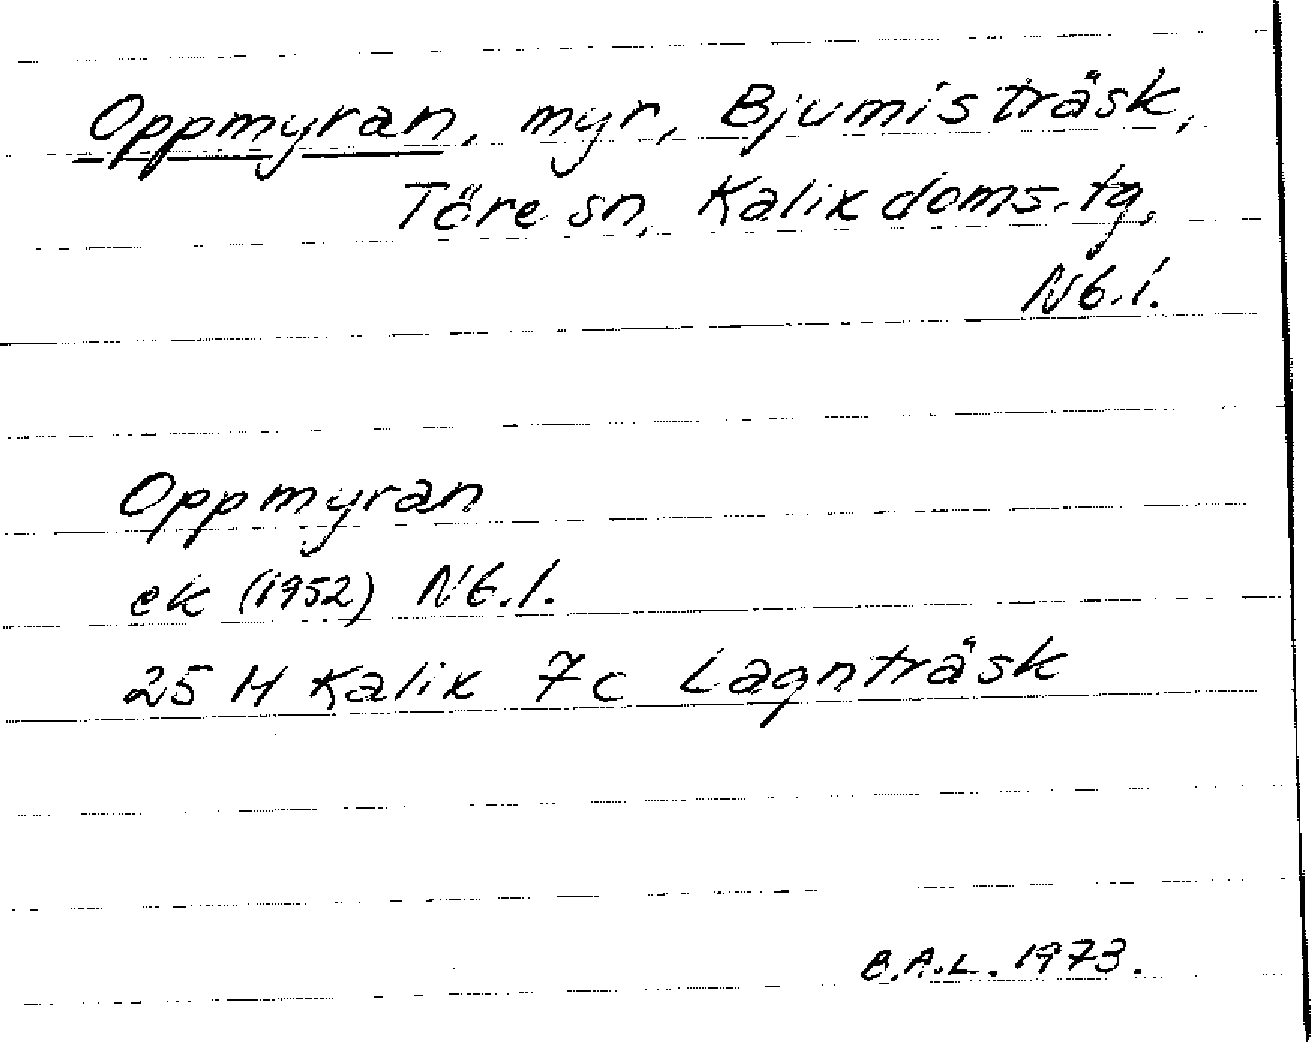 Oppmyran, myr, Bjumisträsk,
Töre sn, Kalix doms.tg,
Nb.l.
Oppmyran
ek (1952) Nb.l.
25 H Kalix 7c Lagnträsk
B.A.L. 1973.